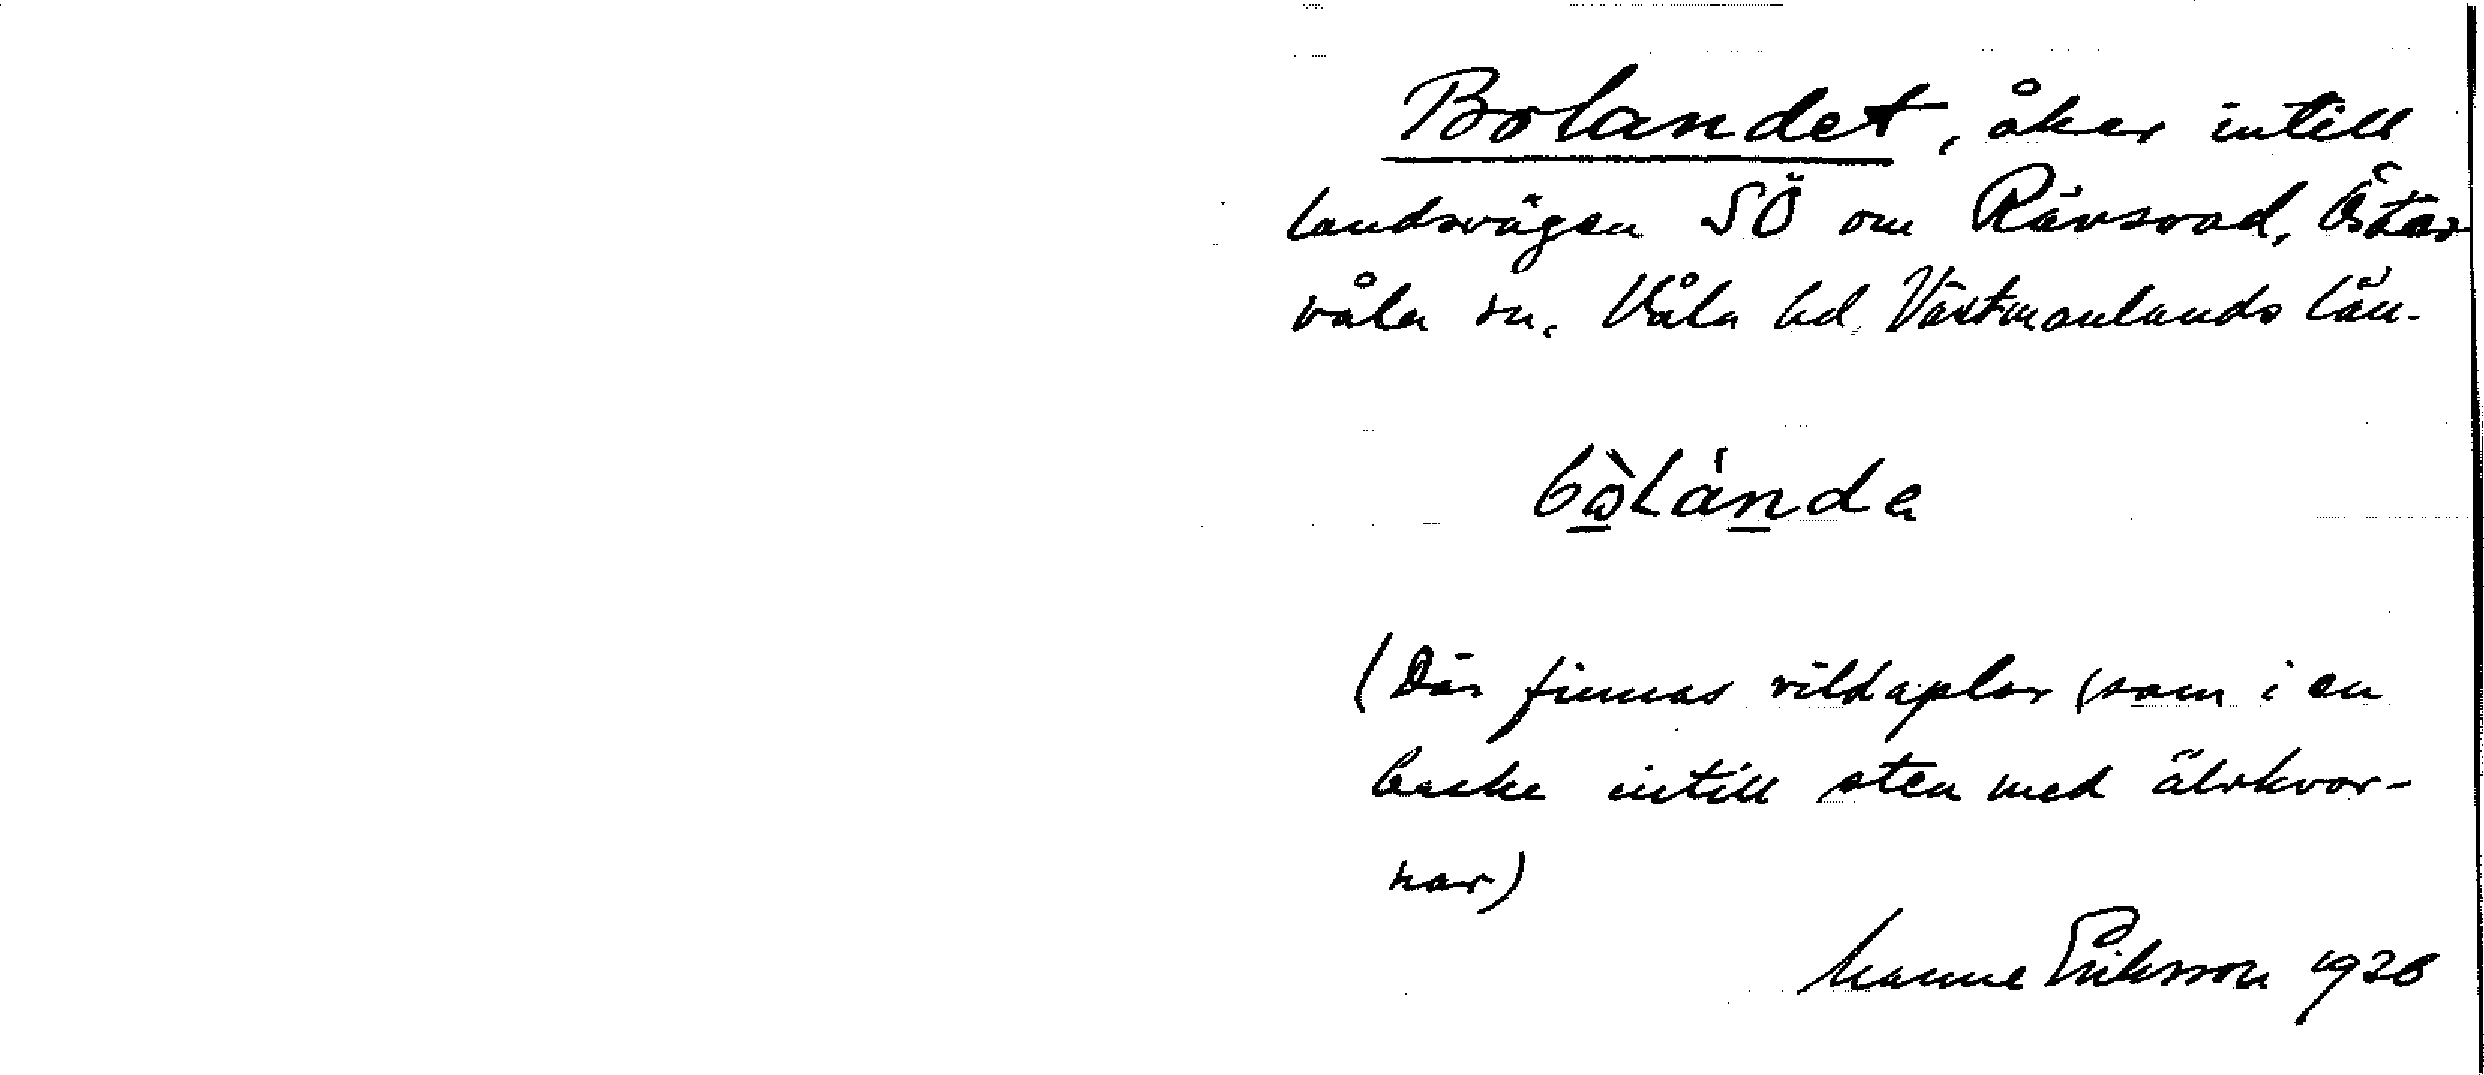 Bolandet, åker intill
landsvägen SÖ om Rävsvad, Öster
våla sn. Våla hd, Västmanlands län.
bòlánda
(Där finnas vildaplar (som i en
backe intill sten med älvkvar-
nar)
Manne Eriksson 1928